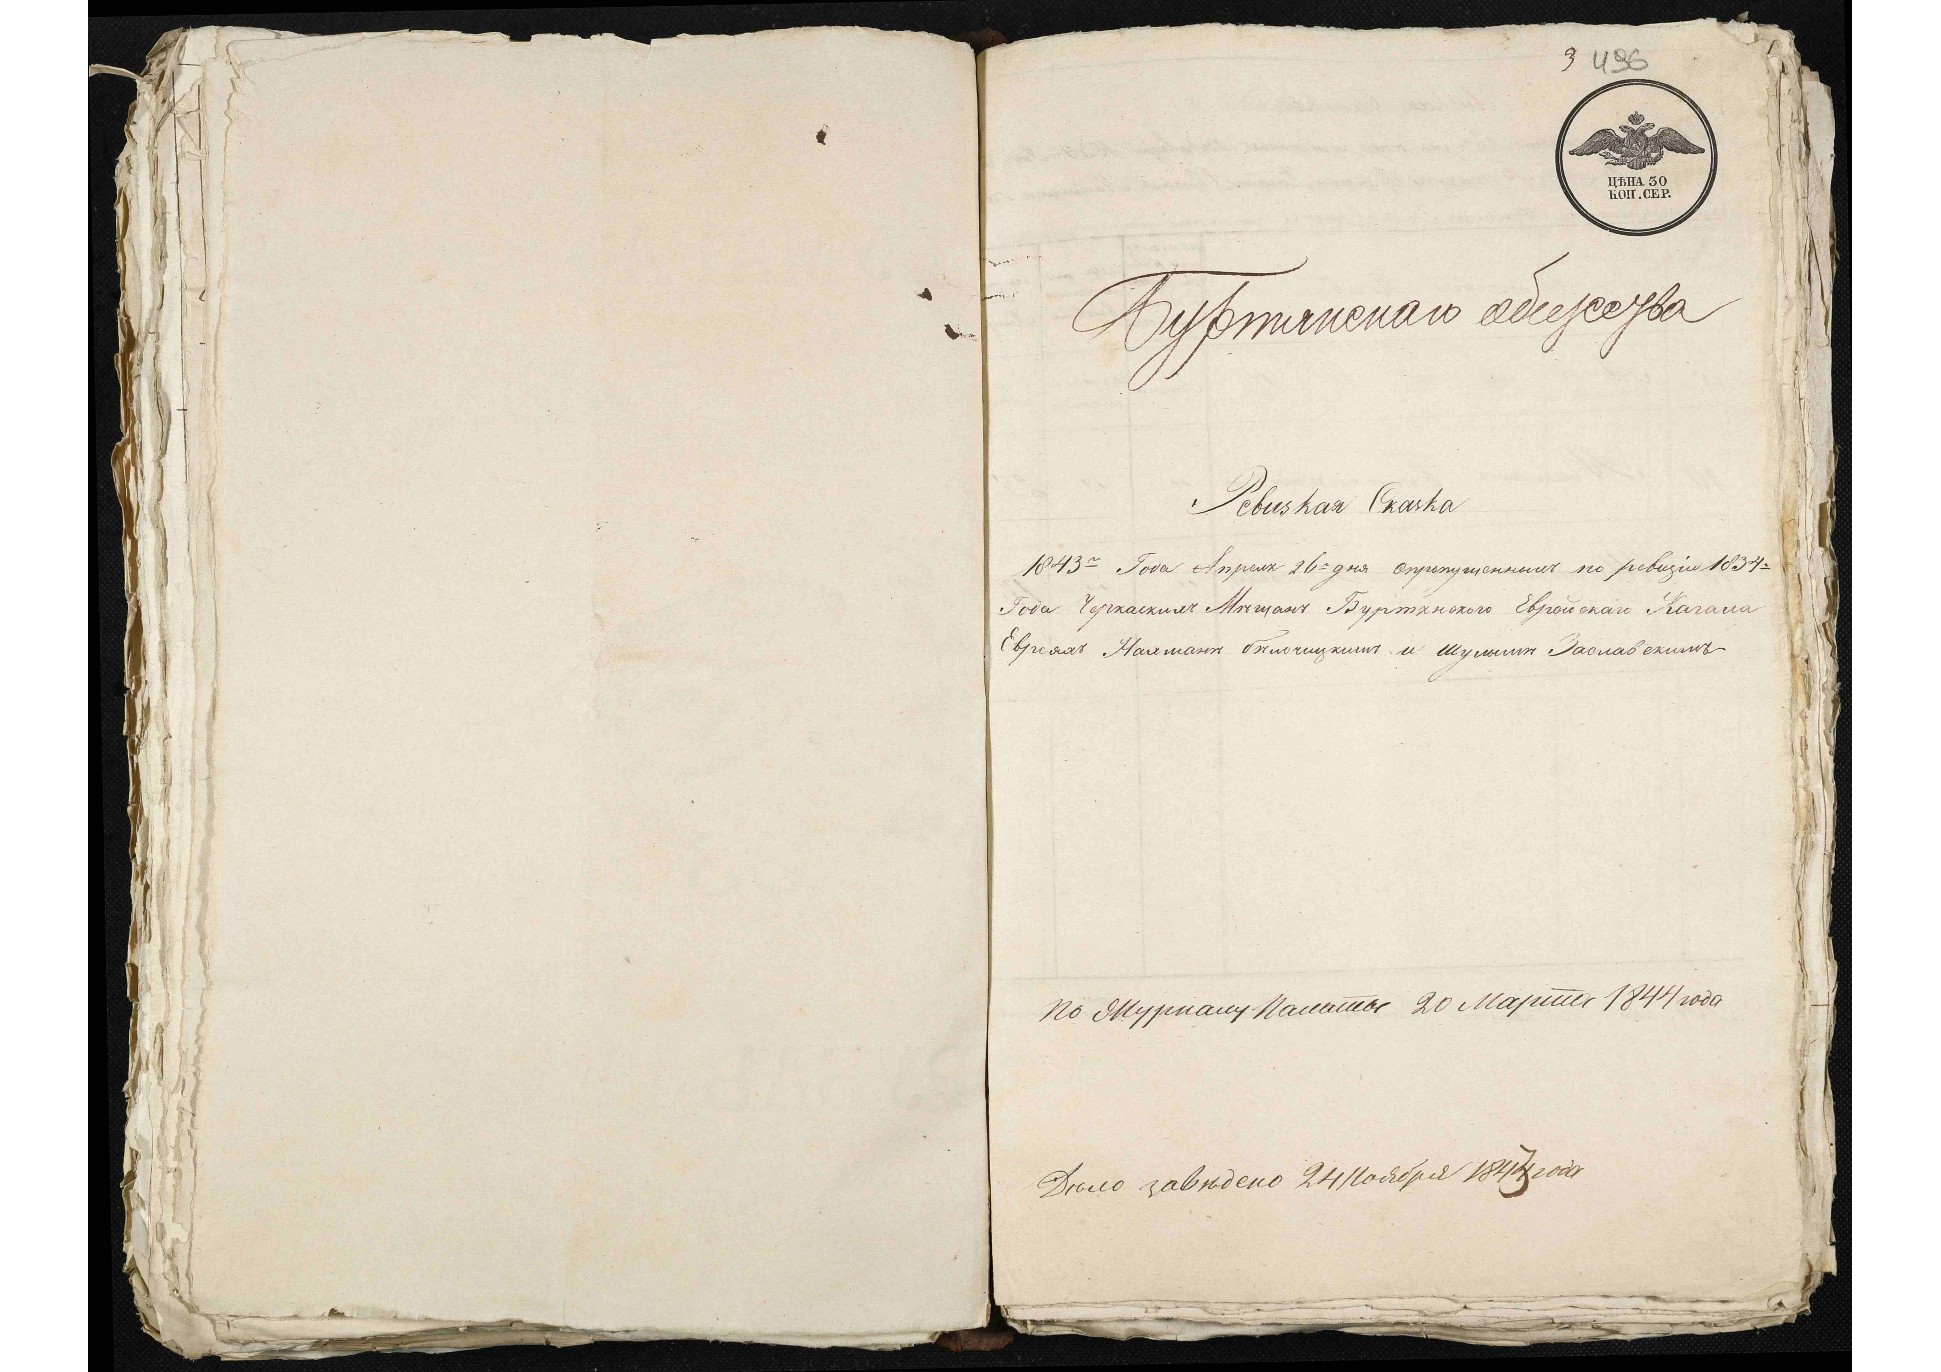 3 496
ЦѢНА 30
КОП. СЕР.
Буртянскаго общества
Ревизкая Сказка
1843го Года Апреля 26го дня опропущенныхъ по ревизіи 1834го
Года Черкаскихъ Мещанъ Буртянского Еврейскаго Кагала
Евреяхъ Нахманѣ Белочицкимъ и Шулимѣ Заславскимъ
По Журналу Палаты 20 Марта 1844 года
Дѣло заведено 24 Ноября 1843 года